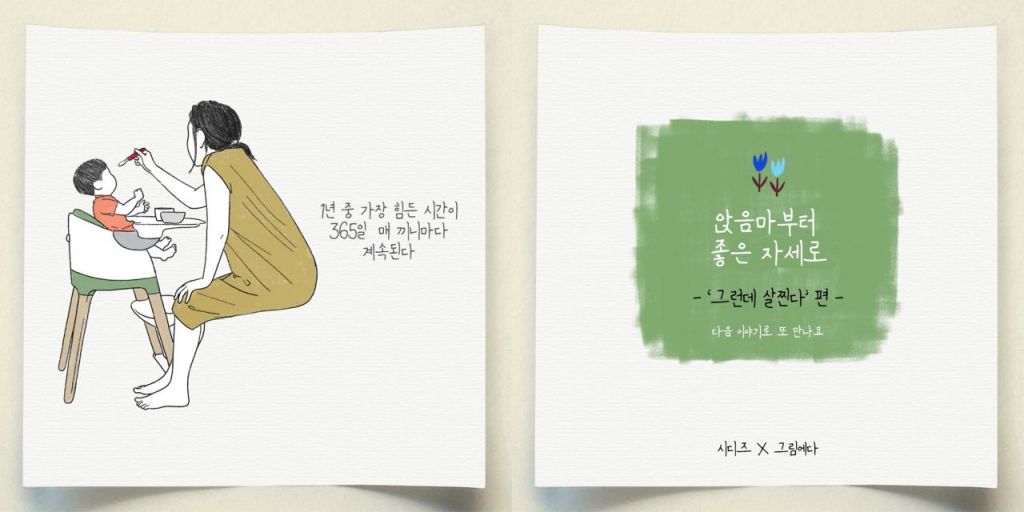 1년 중 가장 힘든 시간이
365일 매 끼니마다
계속된다
앉음마부터
좋은 자세로
- '그런데 살찐다' 편 -
다음 이야기로 또 만나요
시디즈 X 그림에다